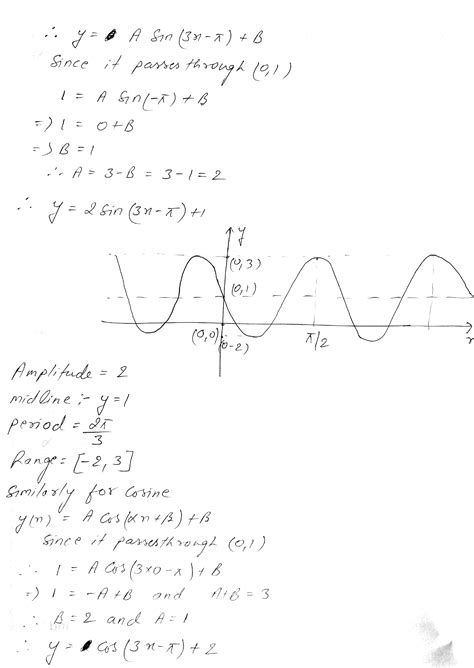 ∴ y = A Sin(3x-π) + B
Since it passes through (0,1)
1 = A Sin(-π) + B
=> 1 = 0+B
=> B = 1
∴ A = 3-B = 3-1 = 2
∴ y = 2 Sin(3x-π)+1
y
(0,3)
(0,1)
(0,0)
(0-2)
π/2
x
Amplitude = 2
midline :- y=1
period = 2π/3
Range = [-2, 3]
Similarly for Cosine
y(x) = A Cos(αx+β)+B
Since it passes through (0,1)
∴ 1 = A Cos(3×0-π)+B
=> 1 = -A+B and A+B = 3
∴ B=2 and A=1
∴ y = Cos(3x-π)+2